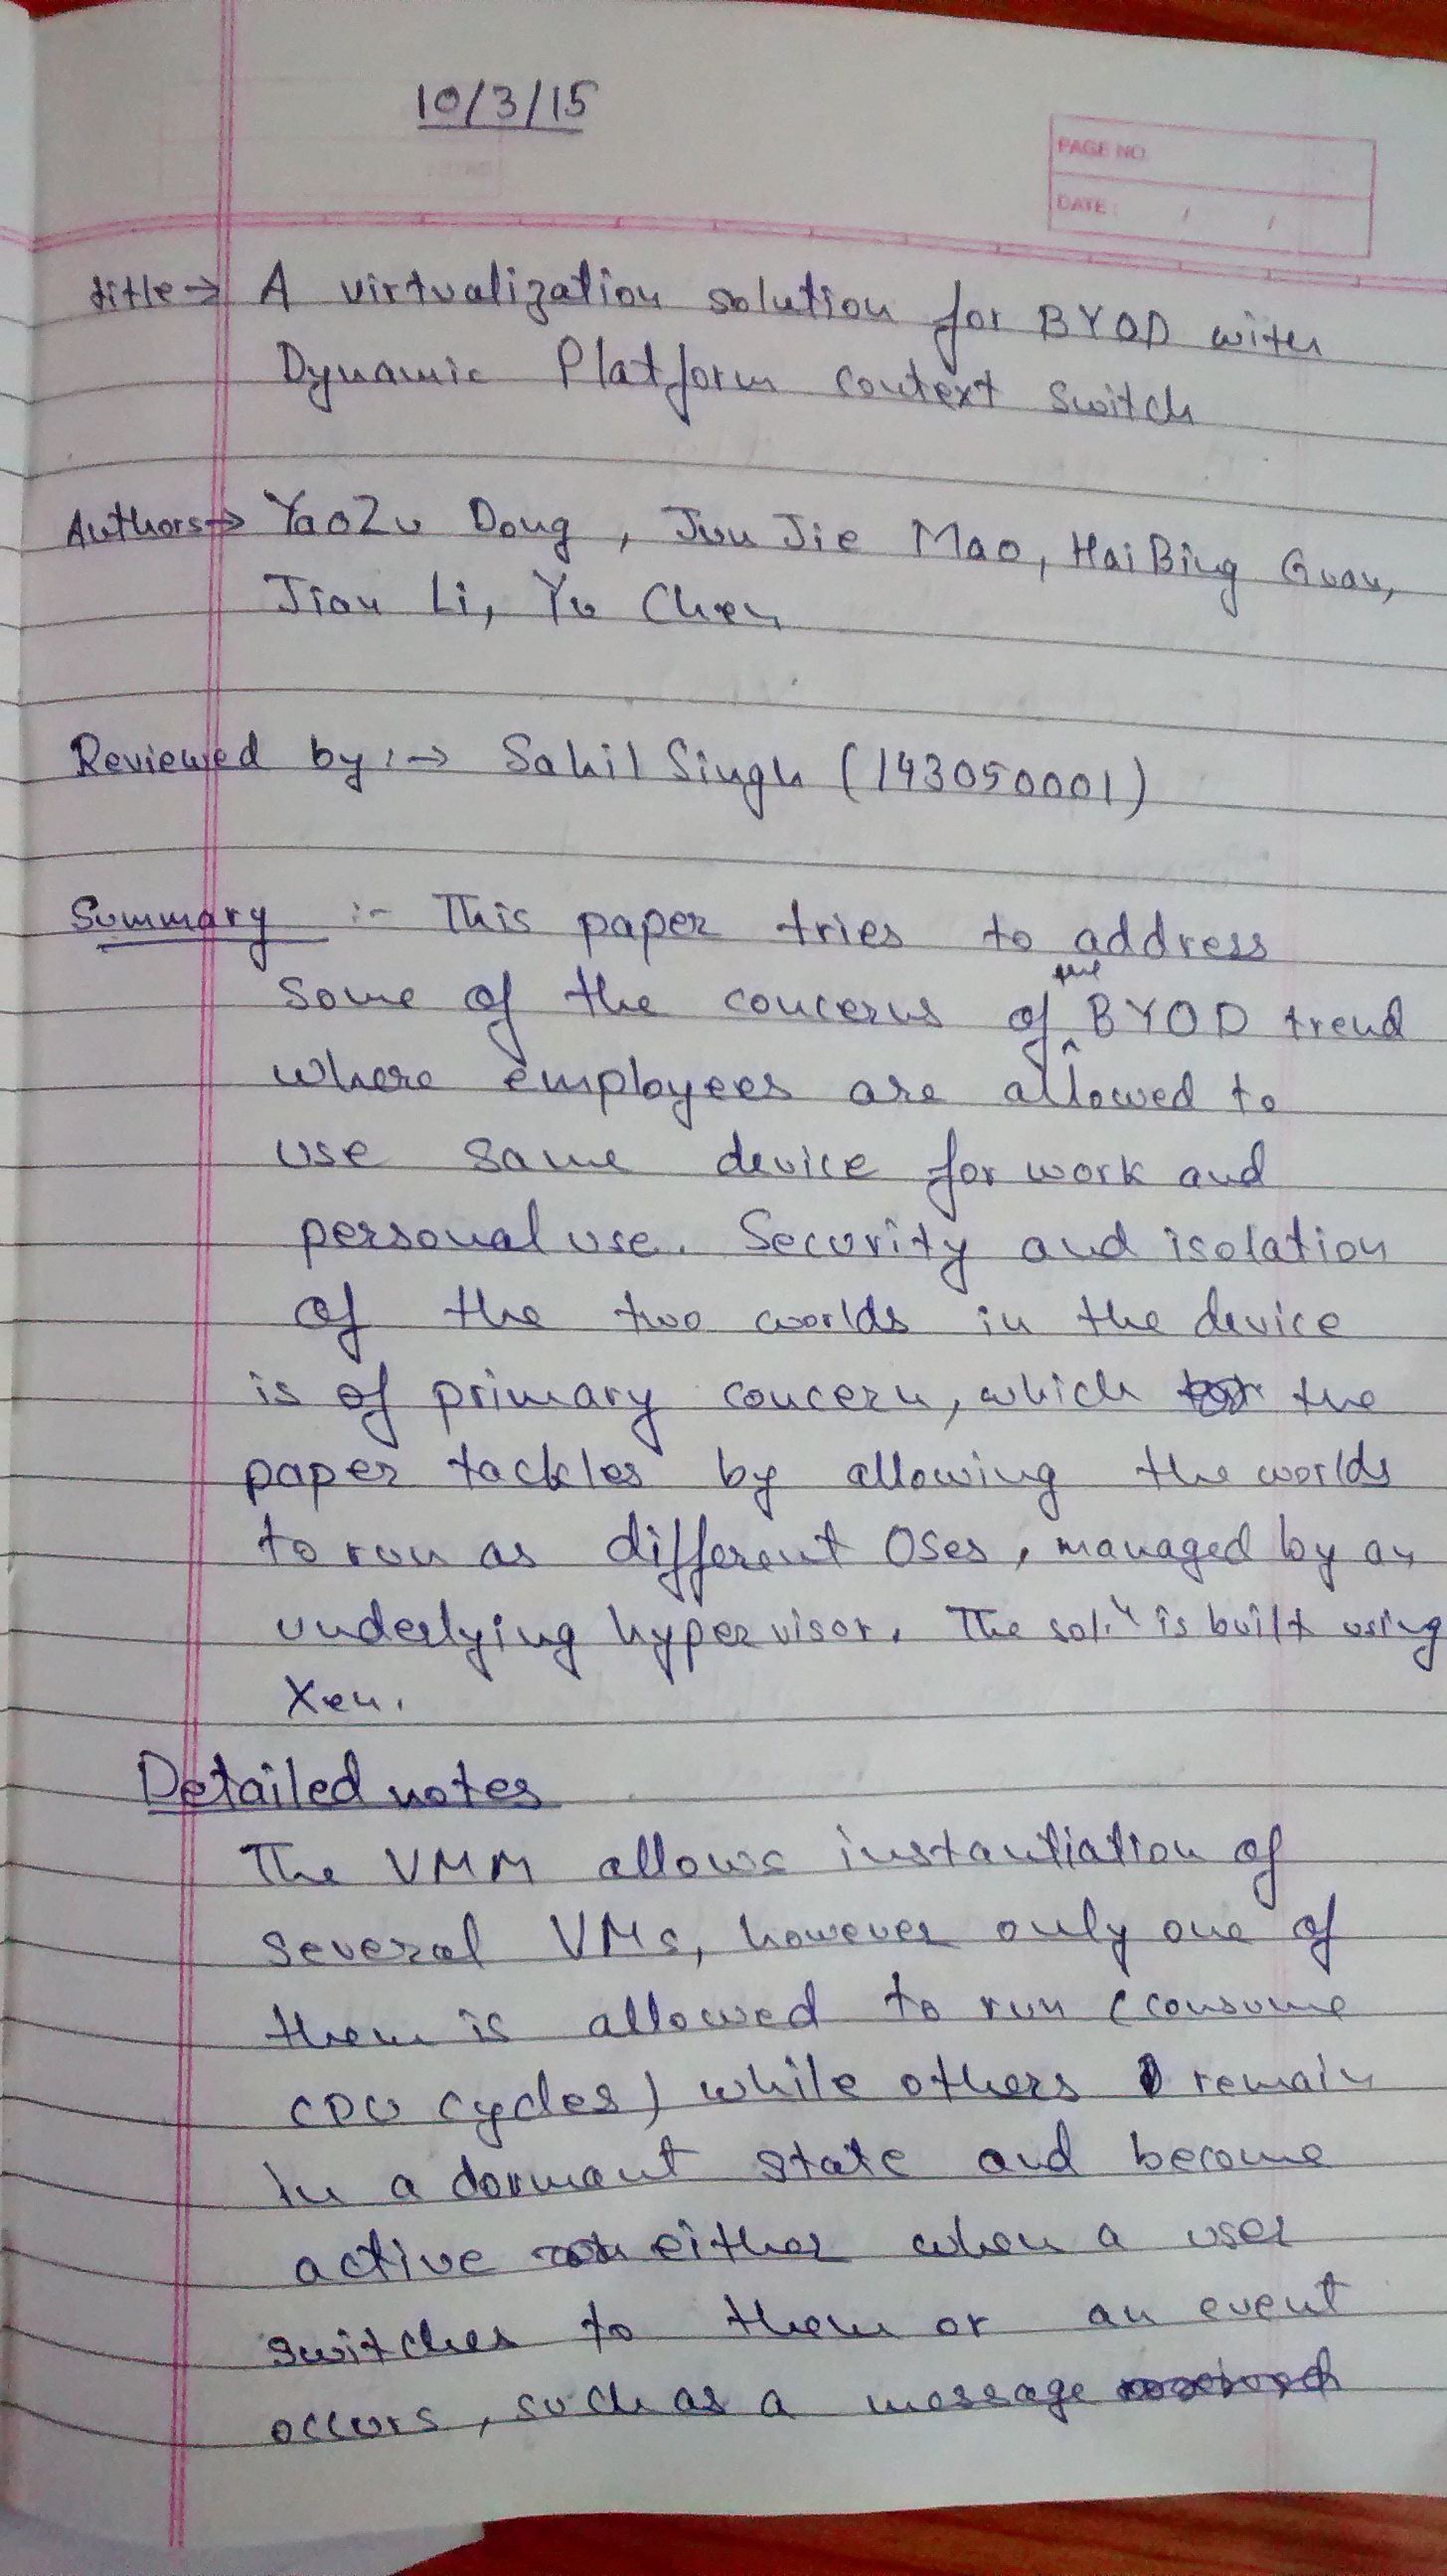 10/3/15
PAGE NO.
DATE: / /
title → A virtualization solution for BYOD with
Dynamic Platform context switch
Authors → YaoZu Dong, JunJie Mao, HaiBing Guan,
Jian Li, Yu Chen
Reviewed by :→ Sahil Singh (143050001)
Summary :- This paper tries to address
some of the concerns of the BYOD trend
where employees are allowed to
use same device for work and
personal use. Security and isolation
of the two worlds in the device
is of primary concern, which the
paper tackles by allowing the worlds
to run as different OSes, managed by an
underlying hypervisor. The sol.n is built using
Xen.
Detailed notes
The VMM allows instantiation of
several VMs, however only one of
them is allowed to run (consume
CPU cycles) while others remain
in a dormant state and become
active either when a user
switches to them or an event
occurs, such as a message